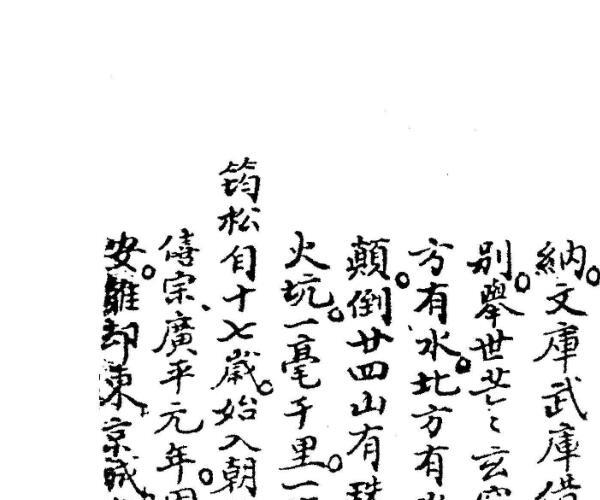 納。文庫武庫借
別。舉世茫々玄
方有水。北方有
顛。倒廿四山有珠
火坑。一毫千里。一
筠松自十七歲。始入朝
僖宗、廣平元年。因
安。離却東京